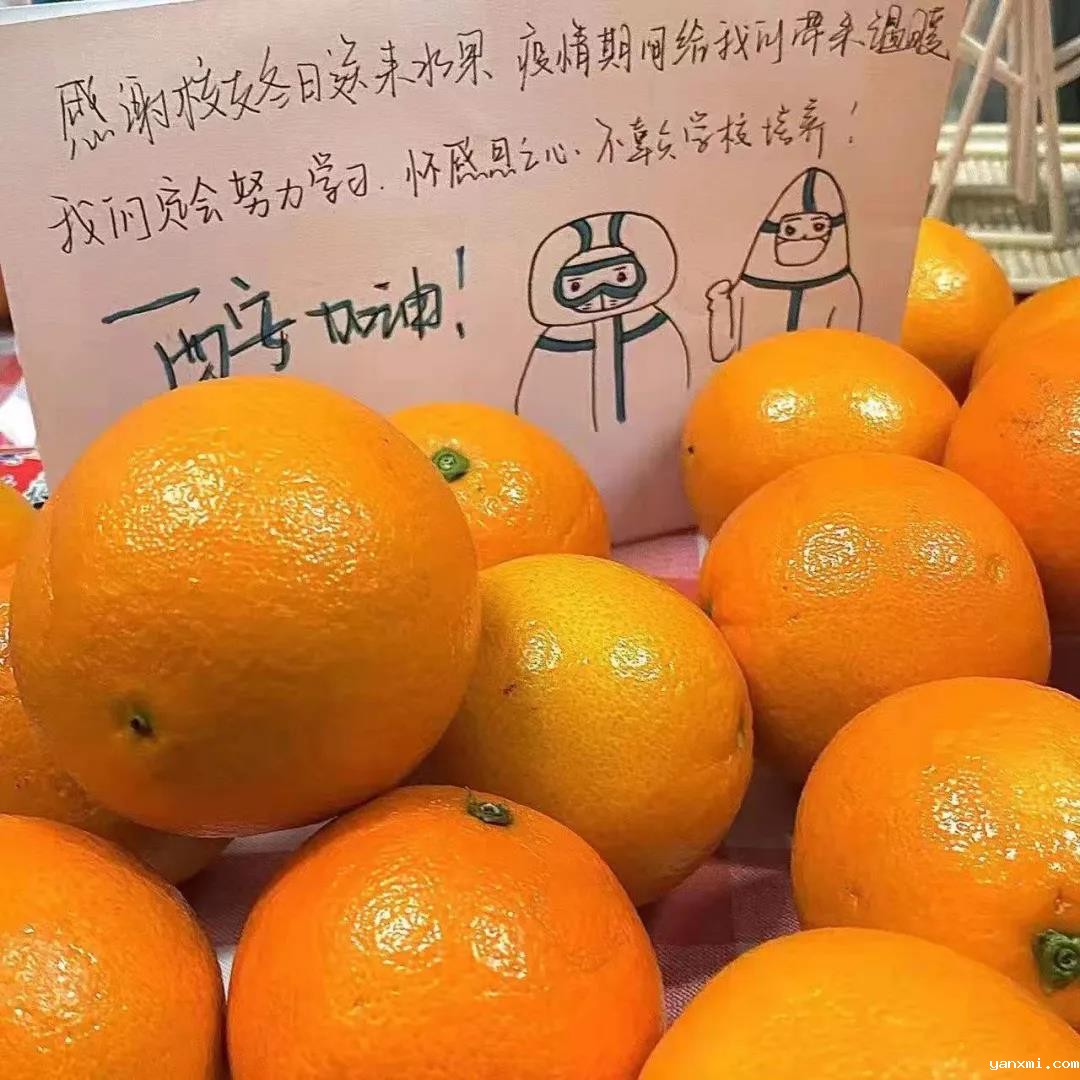 感谢校友冬日送来水果 疫情期间给我们带来温暖
我们定会努力学习.怀感恩之心.不辜负学校培养!
一西安加油!
yanxmi.com